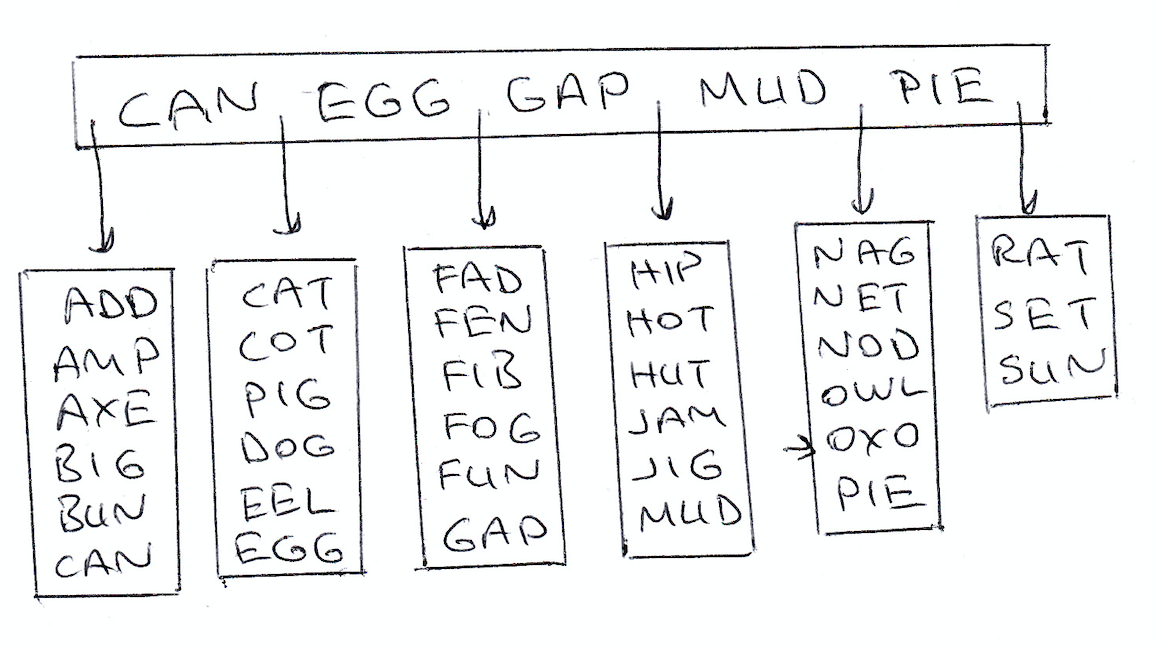 CAN EGG GAP MUD PIE
ADD
AMP
AXE
BIG
BUN
CAN
CAT
COT
PIG
DOG
EEL
EGG
FAD
FEN
FIB
FOG
FUN
GAP
HIP
HOT
HUT
JAM
JIG
MUD
NAG
NET
NOD
OWL
OXO
PIE
RAT
SET
SUN